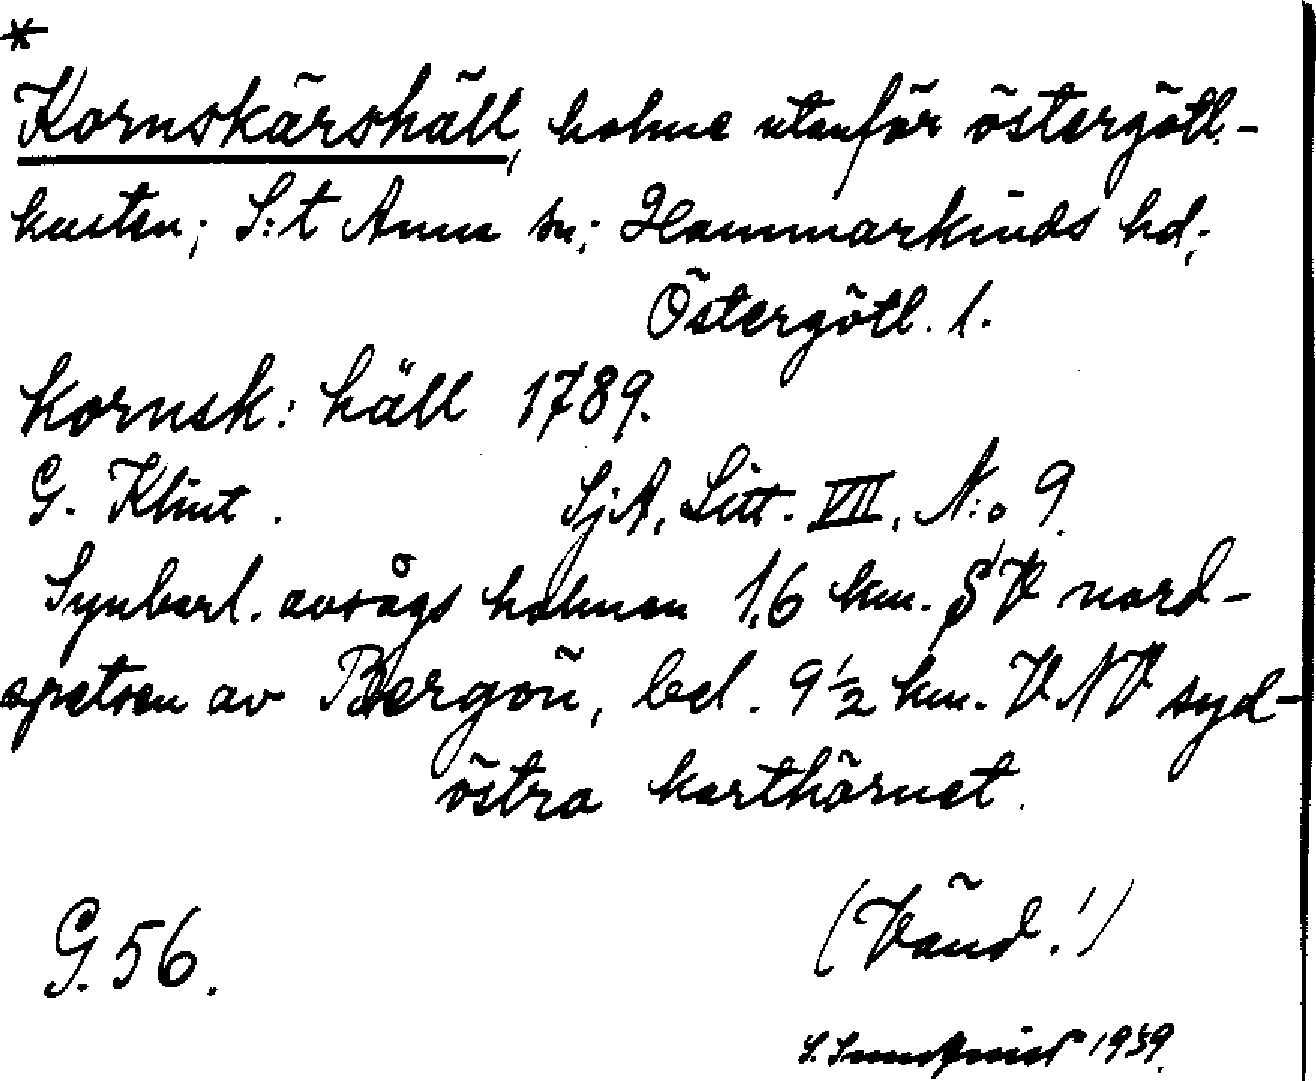 *
Kornskärshäll, holme utanför östergötl.-
kusten; S:t Anna sn; Hammarkinds hd;
Östergötl. l.
kornsk: häll 1789.
G. Klint. SjA, Litt. VII, N:o 9.
Synbarl. avsågs holmen 1,6 km. SV nord-
spetsen av Bergön, bel. 9½ km. VNV syd-
östra karthörnet.
(Vänd!)
G. 56.
S. 1939.